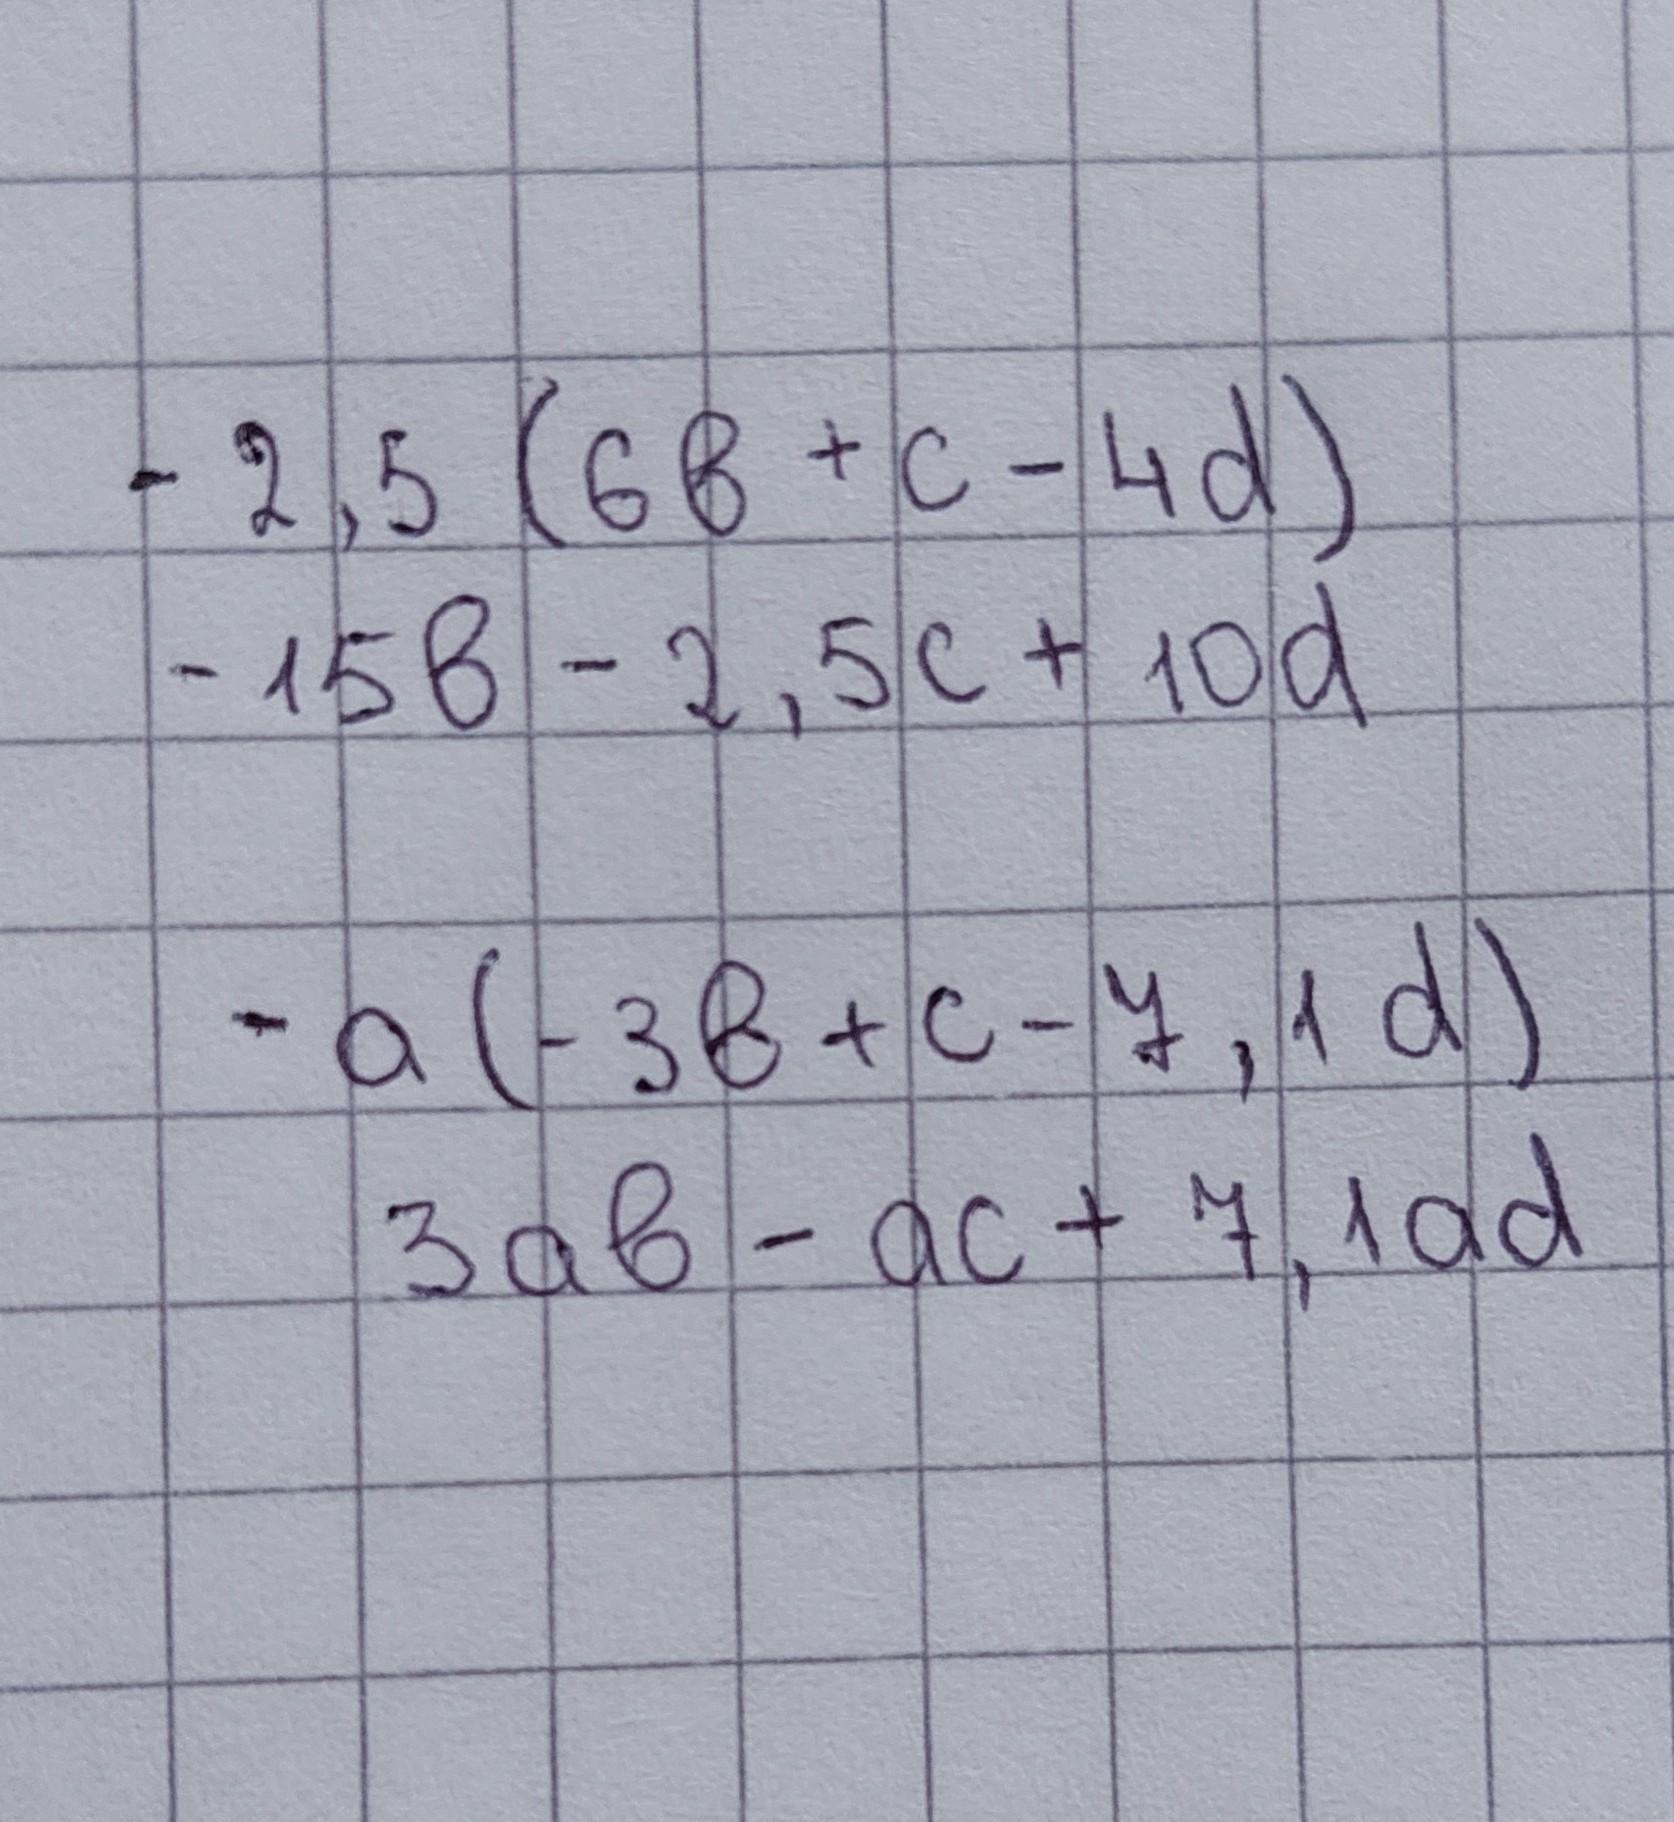 - 2,5 (6в + c - 4d)
- 15в - 2,5c + 10d
- a (- 3в + c - 7,1d)
3aв - ac + 7,1ad